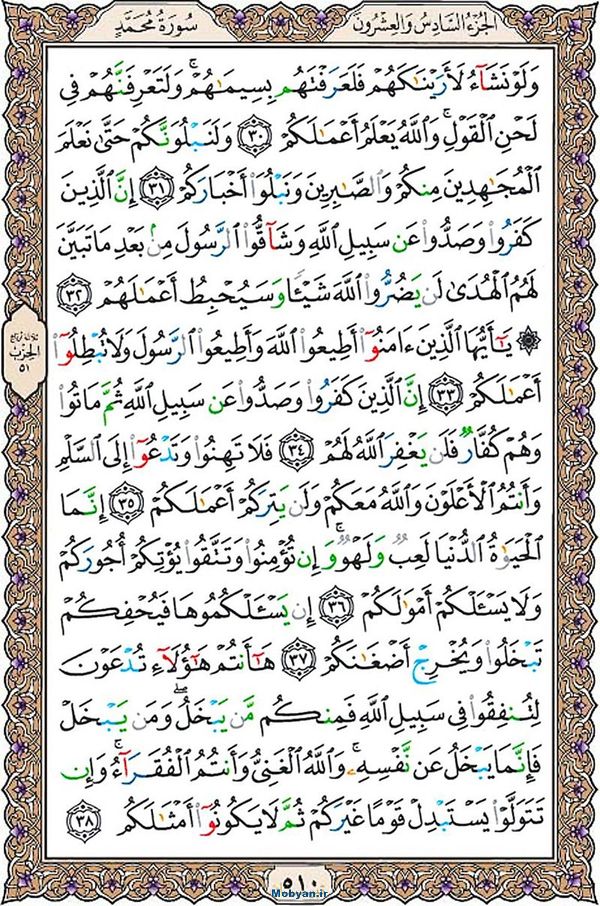 الجزء السادس والعشرون
سورة محمد
وَلَوْ نَشَآءُ لَأَرَيْنَٰكَهُمْ فَلَعَرَفْتَهُم بِسِيمَٰهُمْ ۚ وَلَتَعْرِفَنَّهُمْ فِى
لَحْنِ ٱلْقَوْلِ ۚ وَٱللَّهُ يَعْلَمُ أَعْمَٰلَكُمْ ٣٠ وَلَنَبْلُوَنَّكُمْ حَتَّىٰ نَعْلَمَ
ٱلْمُجَٰهِدِينَ مِنكُمْ وَٱلصَّٰبِرِينَ وَنَبْلُوَا۟ أَخْبَارَكُمْ ٣١ إِنَّ ٱلَّذِينَ
كَفَرُوا۟ وَصَدُّوا۟ عَن سَبِيلِ ٱللَّهِ وَشَآقُّوا۟ ٱلرَّسُولَ مِنۢ بَعْدِ مَا تَبَيَّنَ
لَهُمُ ٱلْهُدَىٰ لَن يَضُرُّوا۟ ٱللَّهَ شَيْـًٔا وَسَيُحْبِطُ أَعْمَٰلَهُمْ ٣٢
۞ يَٰٓأَيُّهَا ٱلَّذِينَ ءَامَنُوٓا۟ أَطِيعُوا۟ ٱللَّهَ وَأَطِيعُوا۟ ٱلرَّسُولَ وَلَا تُبْطِلُوٓا۟
أَعْمَٰلَكُمْ ٣٣ إِنَّ ٱلَّذِينَ كَفَرُوا۟ وَصَدُّوا۟ عَن سَبِيلِ ٱللَّهِ ثُمَّ مَاتُوا۟
وَهُمْ كُفَّارٌ فَلَن يَغْفِرَ ٱللَّهُ لَهُمْ ٣٤ فَلَا تَهِنُوا۟ وَتَدْعُوٓا۟ إِلَى ٱلسَّلْمِ
وَأَنتُمُ ٱلْأَعْلَوْنَ وَٱللَّهُ مَعَكُمْ وَلَن يَتِرَكُمْ أَعْمَٰلَكُمْ ٣٥ إِنَّمَا
ٱلْحَيَوٰةُ ٱلدُّنْيَا لَعِبٌ وَلَهْوٌ ۚ وَإِن تُؤْمِنُوا۟ وَتَتَّقُوا۟ يُؤْتِكُمْ أُجُورَكُمْ
وَلَا يَسْـَٔلْكُمْ أَمْوَٰلَكُمْ ٣٦ إِن يَسْـَٔلْكُمُوهَا فَيُحْفِكُمْ
تَبْخَلُوا۟ وَيُخْرِجْ أَضْغَٰنَكُمْ ٣٧ هَٰٓأَنتُمْ هَٰٓؤُلَآءِ تُدْعَوْنَ
لِتُنفِقُوا۟ فِى سَبِيلِ ٱللَّهِ فَمِنكُم مَّن يَبْخَلُ ۖ وَمَن يَبْخَلْ
فَإِنَّمَا يَبْخَلُ عَن نَّفْسِهِۦ ۚ وَٱللَّهُ ٱلْغَنِىُّ وَأَنتُمُ ٱلْفُقَرَآءُ ۚ وَإِن
تَتَوَلَّوْا۟ يَسْتَبْدِلْ قَوْمًا غَيْرَكُمْ ثُمَّ لَا يَكُونُوٓا۟ أَمْثَٰلَكُم ٣٨
الحزب
٥١
٥١٠
Mobyan.ir